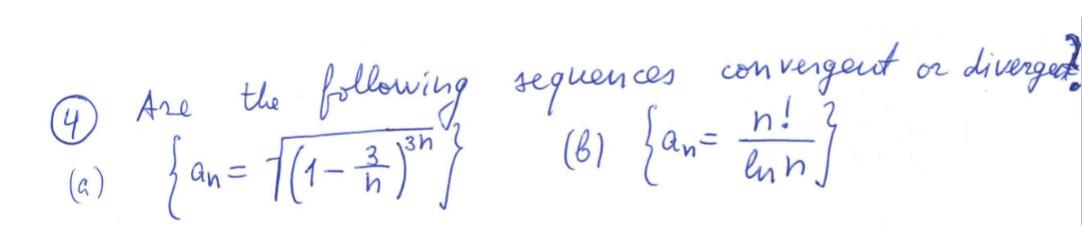 ④ Are the following sequences convergent or divergent?
(a) { aₙ = √((1 - 3/n)³ⁿ) } (b) { aₙ = n!/ln n }